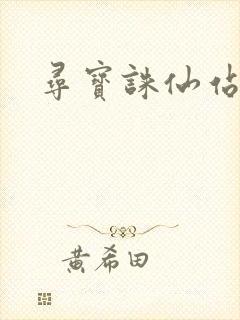 尋寶誅仙佔
黃希田